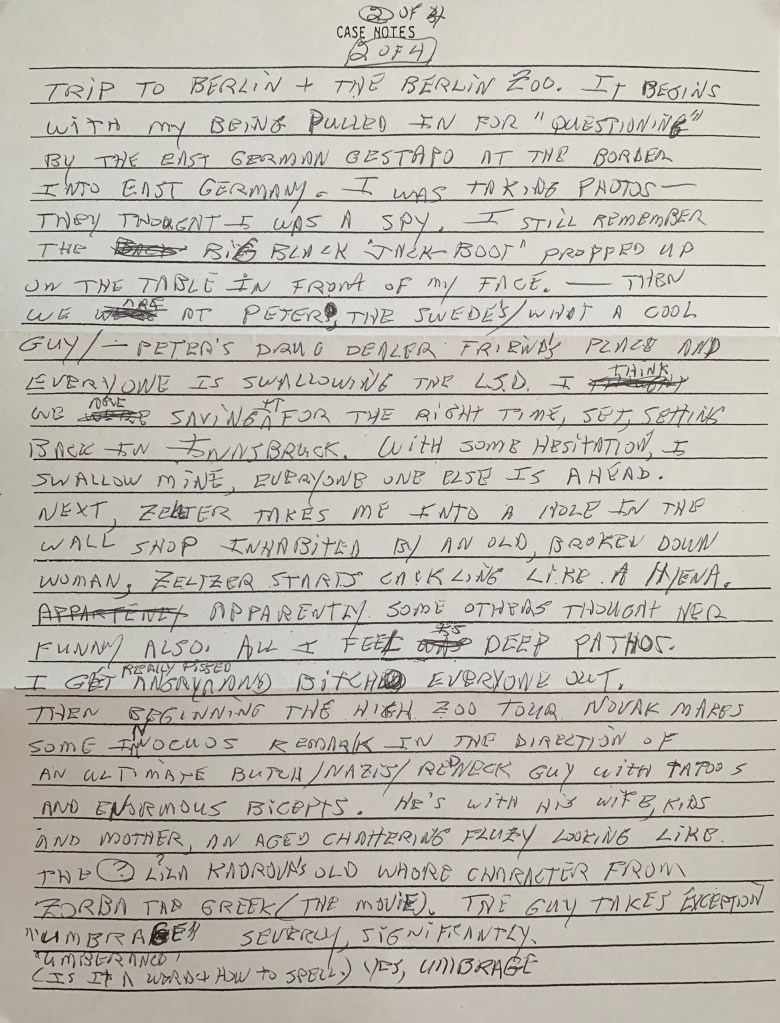 2 OF 4
CASE NOTES
2 OF 4
TRIP TO BERLIN + THE BERLIN ZOO. IT BEGINS
WITH MY BEING PULLED IN FOR "QUESTIONING"
BY THE EAST GERMAN GESTAPO AT THE BORDER
INTO EAST GERMANY. I WAS TAKING PHOTOS —
THEY THOUGHT I WAS A SPY. I STILL REMEMBER
THE BACK BIG BLACK "JACK-BOOT" PROPPED UP
ON THE TABLE IN FRONT OF MY FACE. — THEN
WE ARE AT PETER, THE SWEDE'S/WHAT A COOL
GUY/— PETER'S DRUG DEALER FRIEND'S PLACE AND
EVERYONE IS SWALLOWING THE L.S.D. I THINK
WE HAVE SAVING IT FOR THE RIGHT TIME, SET, SETTING
BACK IN INNSBRUCK. WITH SOME HESITATION, I
SWALLOW MINE, EVERYONE ONE ELSE IS AHEAD.
NEXT, TAKES ME INTO A HOLE IN THE
WALL SHOP INHABITED BY AN OLD, BROKEN DOWN
WOMAN. ZELTZER STARTS CACKLING LIKE A HYENA.
APPARTENLY APPARENTLY SOME OTHERS THOUGHT HER
FUNNY ALSO. ALL I FEEL WAS IS DEEP PATHOS.
I GET REALLY PISSED ANGRY AND BITCH EVERYONE OUT.
THEN BEGINNING THE HIGH ZOO TOUR NOVAK MAKES
SOME INNOCUOS REMARK IN THE DIRECTION OF
AN ULTIMATE BUTCH/NAZIS/REDNECK GUY WITH TATOOS
AND ENORMOUS BICEPTS. HE'S WITH HIS WIFE, KIDS
AND MOTHER, AN AGED CHATTERING FLUZY LOOKING LIKE
THE ? LILA KADROVA'S OLD WHORE CHARACTER FROM
ZORBA THE GREEK (THE MOVIE). THE GUY TAKES EXCEPTION
"UMBRAGE" SEVERLY, SIGNIFICANTLY.
"UMBERANCE"
(IS IT A WORD + HOW TO SPELL.) YES, UMBRAGE